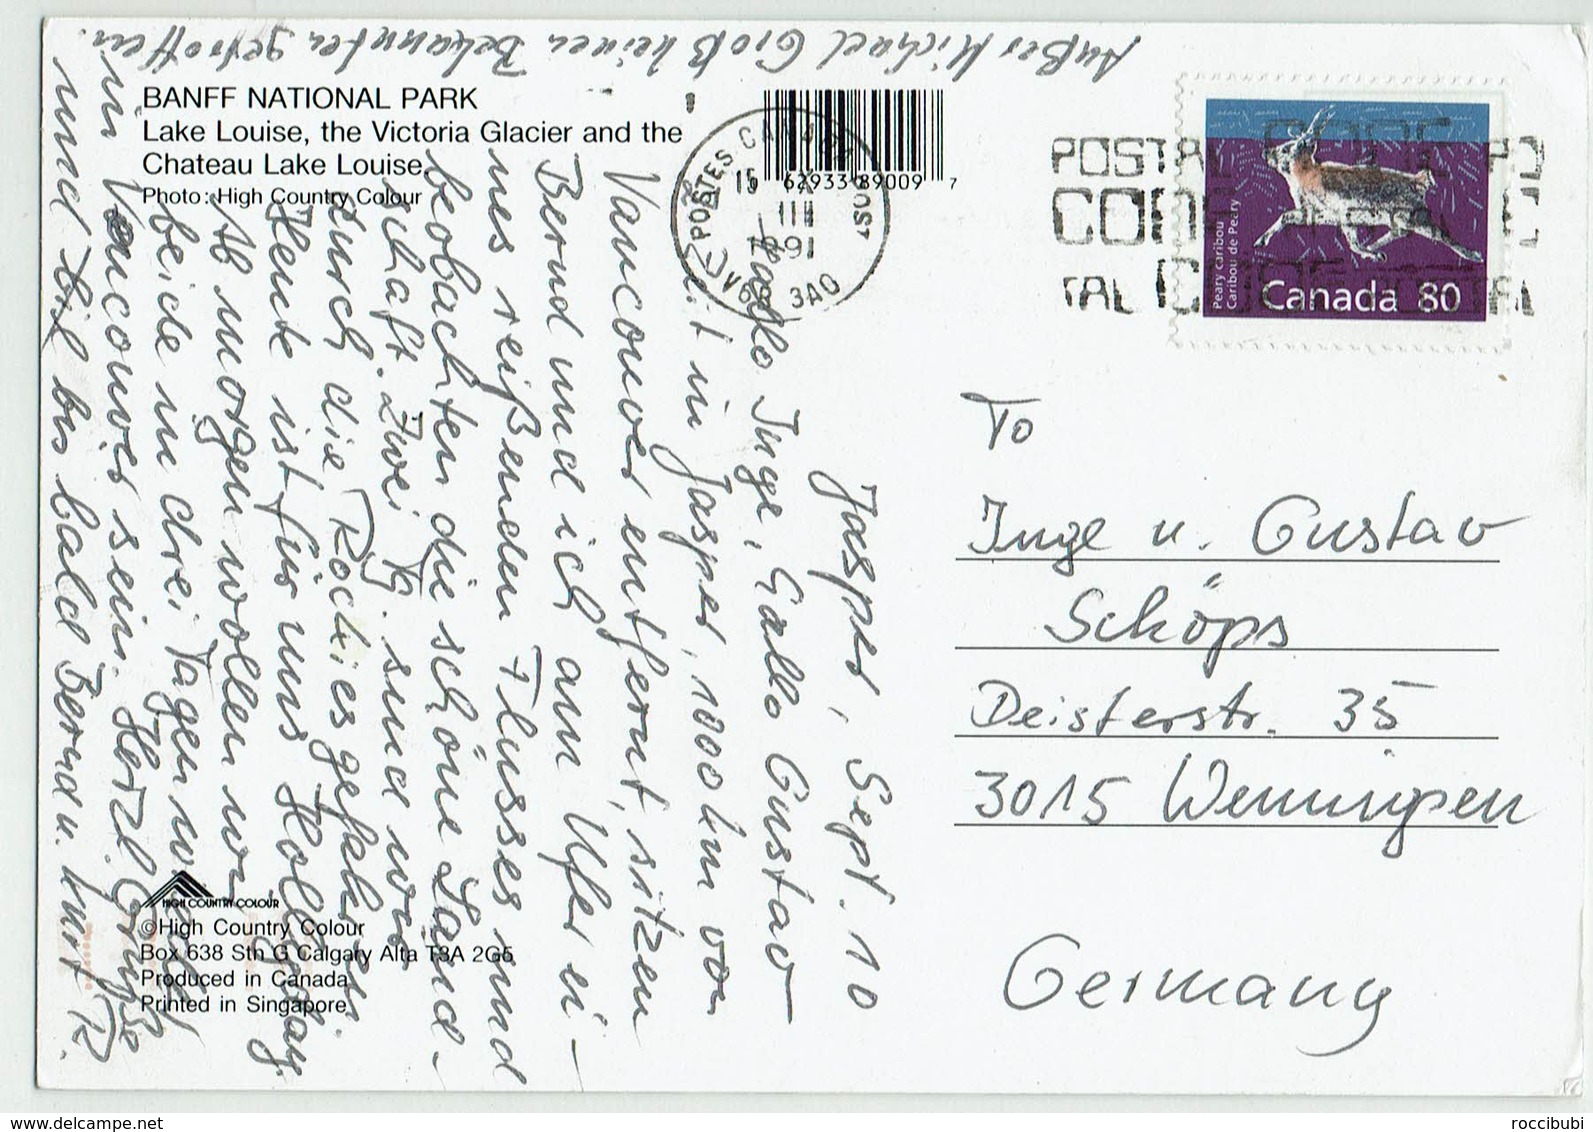 BANFF NATIONAL PARK
Lake Louise, the Victoria Glacier and the
Chateau Lake Louise.
Photo: High Country Colour
62933 89009 7
POSTES CANADA POST
1991
3A0
Peary caribou
Caribou de Peary
Canada 80
Jasper, Sept. 10
Hallo Inge, Hallo Gustav
Zeit in Jasper, 1000 km von
Vancouver entfernt, sitzen
Bernd und ich am Ufer ei-
nes reißenden Flusses und
beobachten die schöne Land-
schaft. Zwei Tg. sind wir
durch die Rockies gefahren.
Heute ist für uns Holliday.
Ab morgen wollen wir
beide in drei Tagen
in Vancouver sein. Herzl. Grüße
und bis bald Bernd u. Kurt R.
Außer Michael Groß keinen Bekannten getroffen.
To
Inge u. Gustav
Schöps
Deisterstr. 35
3015 Wennigsen
Germany
HIGH COUNTRY COLOUR
©High Country Colour
Box 638 Stn G Calgary Alta T3A 2G5
Produced in Canada
Printed in Singapore
roccibubi